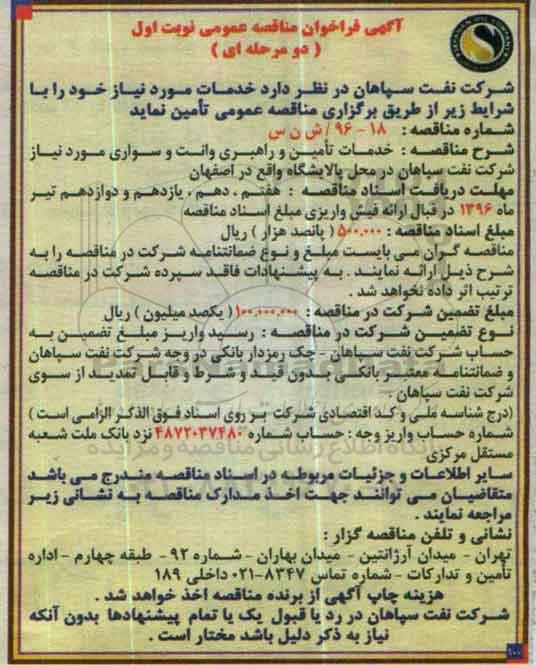 آگهی فراخوان مناقصه عمومی نوبت اول
( دو مرحله ای )
شرکت نفت سپاهان در نظر دارد خدمات مورد نیاز خود را با
شرایط زیر از طریق برگزاری مناقصه عمومی تأمین نماید
شماره مناقصه : ۱۸ - ۹۶ / ش ن س
شرح مناقصه : خدمات تأمین و راهبری وانت و سواری مورد نیاز
شرکت نفت سپاهان در محل پالایشگاه واقع در اصفهان
مهلت دریافت اسناد مناقصه : هفتم ، دهم ، یازدهم و دوازدهم تیر
ماه ۱۳۹۶ در قبال ارائه فیش واریزی مبلغ اسناد مناقصه
مبلغ اسناد مناقصه : ۵۰۰,۰۰۰ ( پانصد هزار ) ریال
مناقصه گران می بایست مبلغ و نوع ضمانتنامه شرکت در مناقصه را به
شرح ذیل ارائه نمایند . به پیشنهادات فاقد سپرده شرکت در مناقصه
ترتیب اثر داده نخواهد شد .
مبلغ تضمین شرکت در مناقصه : ۱۰۰,۰۰۰,۰۰۰ ( یکصد میلیون ) ریال
نوع تضمین شرکت در مناقصه : رسید واریز مبلغ تضمین به
حساب شرکت نفت سپاهان - چک رمزدار بانکی در وجه شرکت نفت سپاهان
و ضمانتنامه معتبر بانکی بدون قید و شرط و قابل تمدید از سوی
شرکت نفت سپاهان .
(درج شناسه ملی و کد اقتصادی شرکت بر روی اسناد فوق الذکر الزامی است )
شماره حساب واریز وجه : حساب شماره ۴۸۷۲۰۳۷۴۸۰ نزد بانک ملت شعبه
مستقل مرکزی
سایر اطلاعات و جزئیات مربوطه در اسناد مناقصه مندرج می باشد
متقاضیان می توانند جهت اخذ مدارک مناقصه به نشانی زیر
مراجعه نمایند .
نشانی و تلفن مناقصه گزار :
تهران - میدان آرژانتین - میدان بهاران - شماره ۹۲ - طبقه چهارم - اداره
تأمین و تدارکات - شماره تماس ۸۳۴۷-۰۲۱ داخلی ۱۸۹
هزینه چاپ آگهی از برنده مناقصه اخذ خواهد شد .
شرکت نفت سپاهان در رد یا قبول یک یا تمام پیشنهادها بدون آنکه
نیاز به ذکر دلیل باشد مختار است .